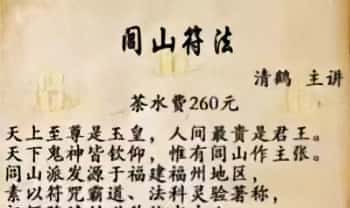 闾山符法
清鹤 主讲
茶水費260元
天上至尊是玉皇，人间最貴是君王。
天下鬼神皆钦仰，惟有闾山作主张。
闾山派发源于福建福州地区，
素以符咒霸道、法科灵验著称，